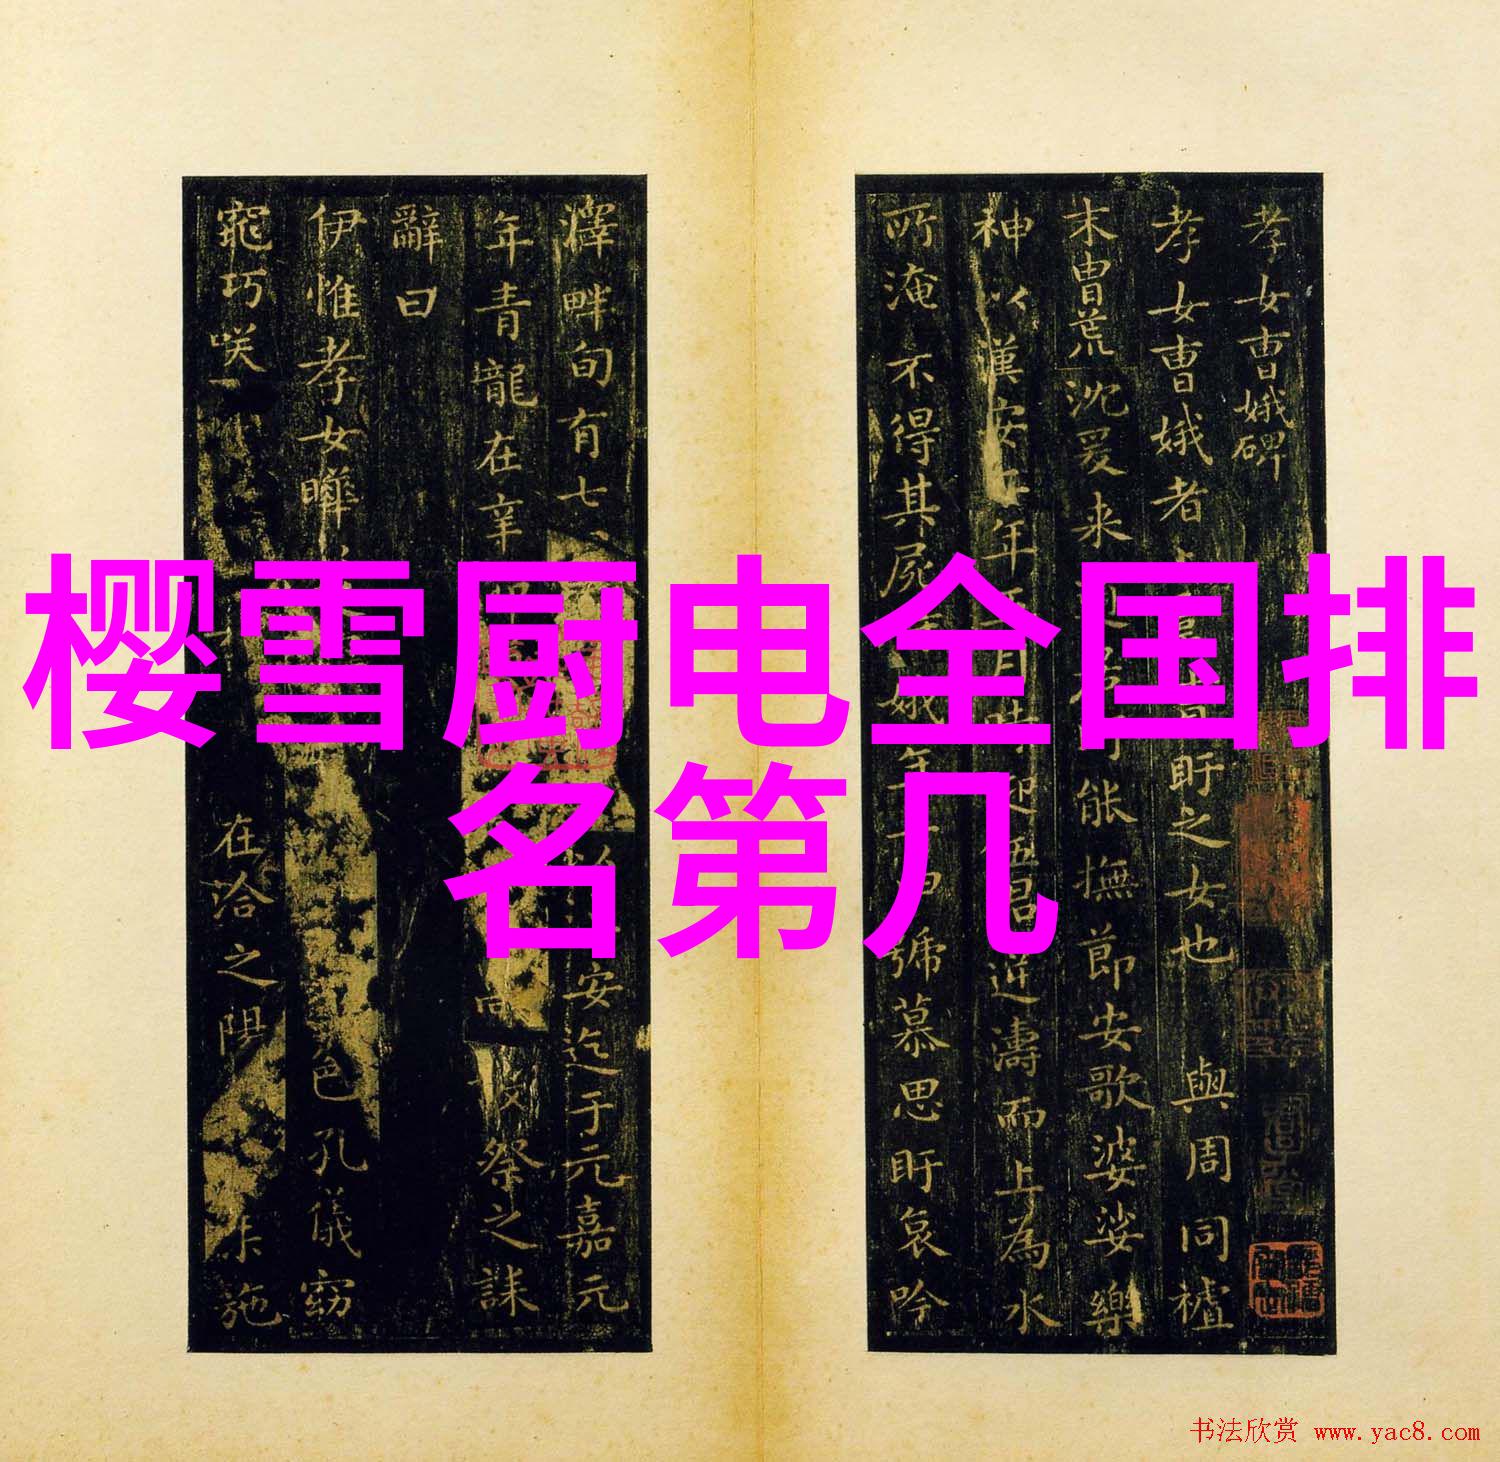 樱雪厨电全国排
名第几
孝女曹娥碑
孝女曹娥者 盱之女也 與周同
末胄荒沈爰来 能撫節安歌婆娑樂
神以漢安 年 月 迎 逆濤而上為水
所淹不得其屍 娥年 號慕思盱哀吟
澤畔旬有七 安迄于元嘉元
年青龍在辛 祭之誄
辭曰
伊惟孝女曄 色孔儀窈
窕巧咲 在洽之陽 施
书法欣赏 www.yac8.com